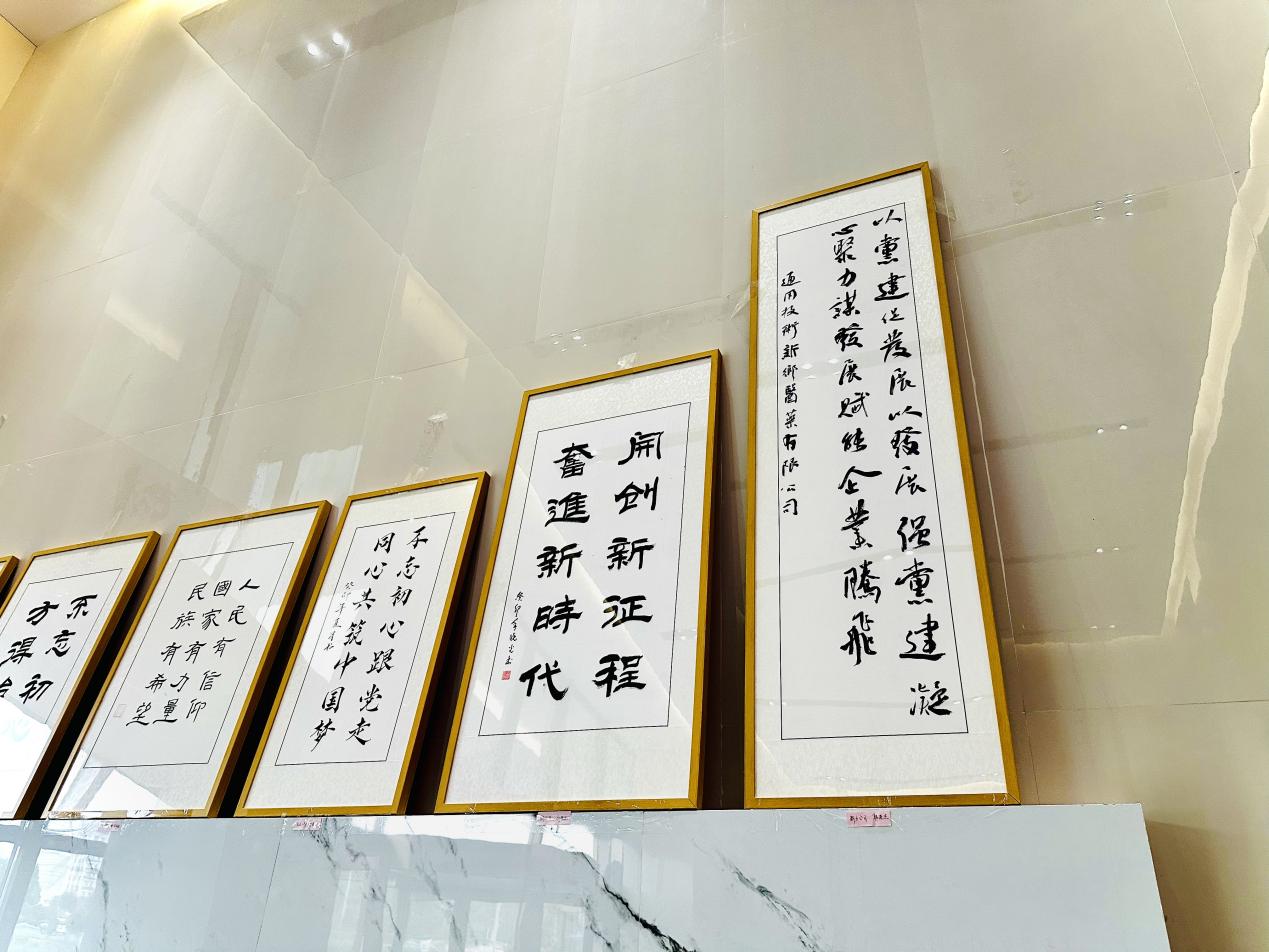 以黨建促發展以發展强黨建凝
心聚力謀發展賦能企業騰飛
通用技術新鄉醫药有限公司
開创新征程
奮進新時代
不忘初心跟党走
同心共筑中国梦
人民有信仰
國家有力量
民族有希望
不忘初
方得